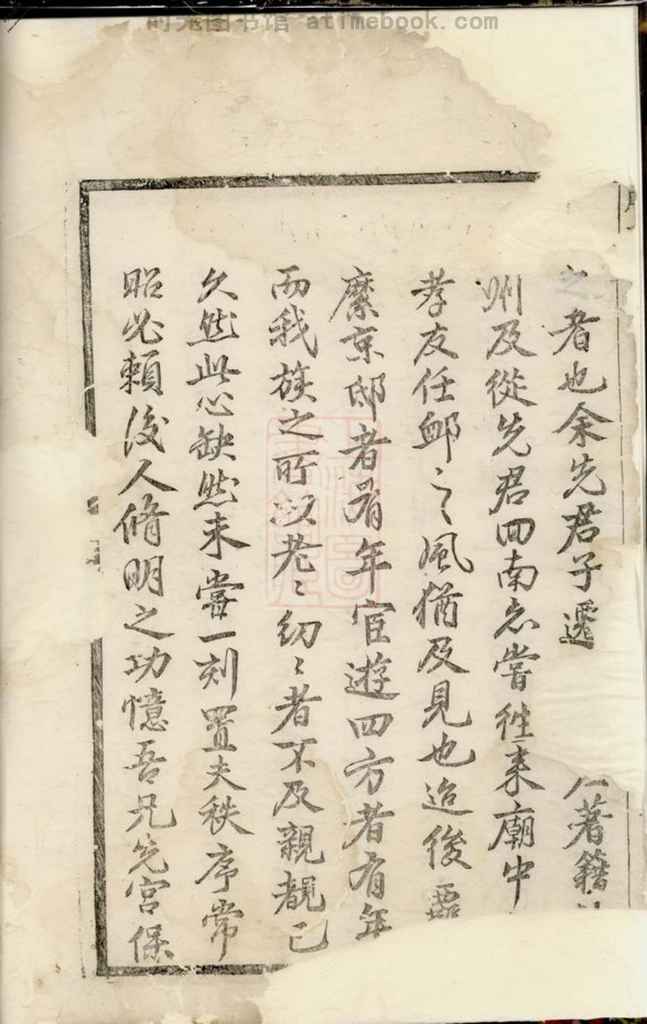 时光图书馆 atimebook.com
者也余先君子遷 著籍
州及從先君回南忽嘗往来廟中
孝友任卹之之風猶及見也迨後
縻京邸者有年宦遊四方者有年
而我族之所以老〻幼〻者不及親覩已
久然此心缺然未嘗一刻置夫秩序常
昭必賴後人脩明之功憶吾兄先宮保